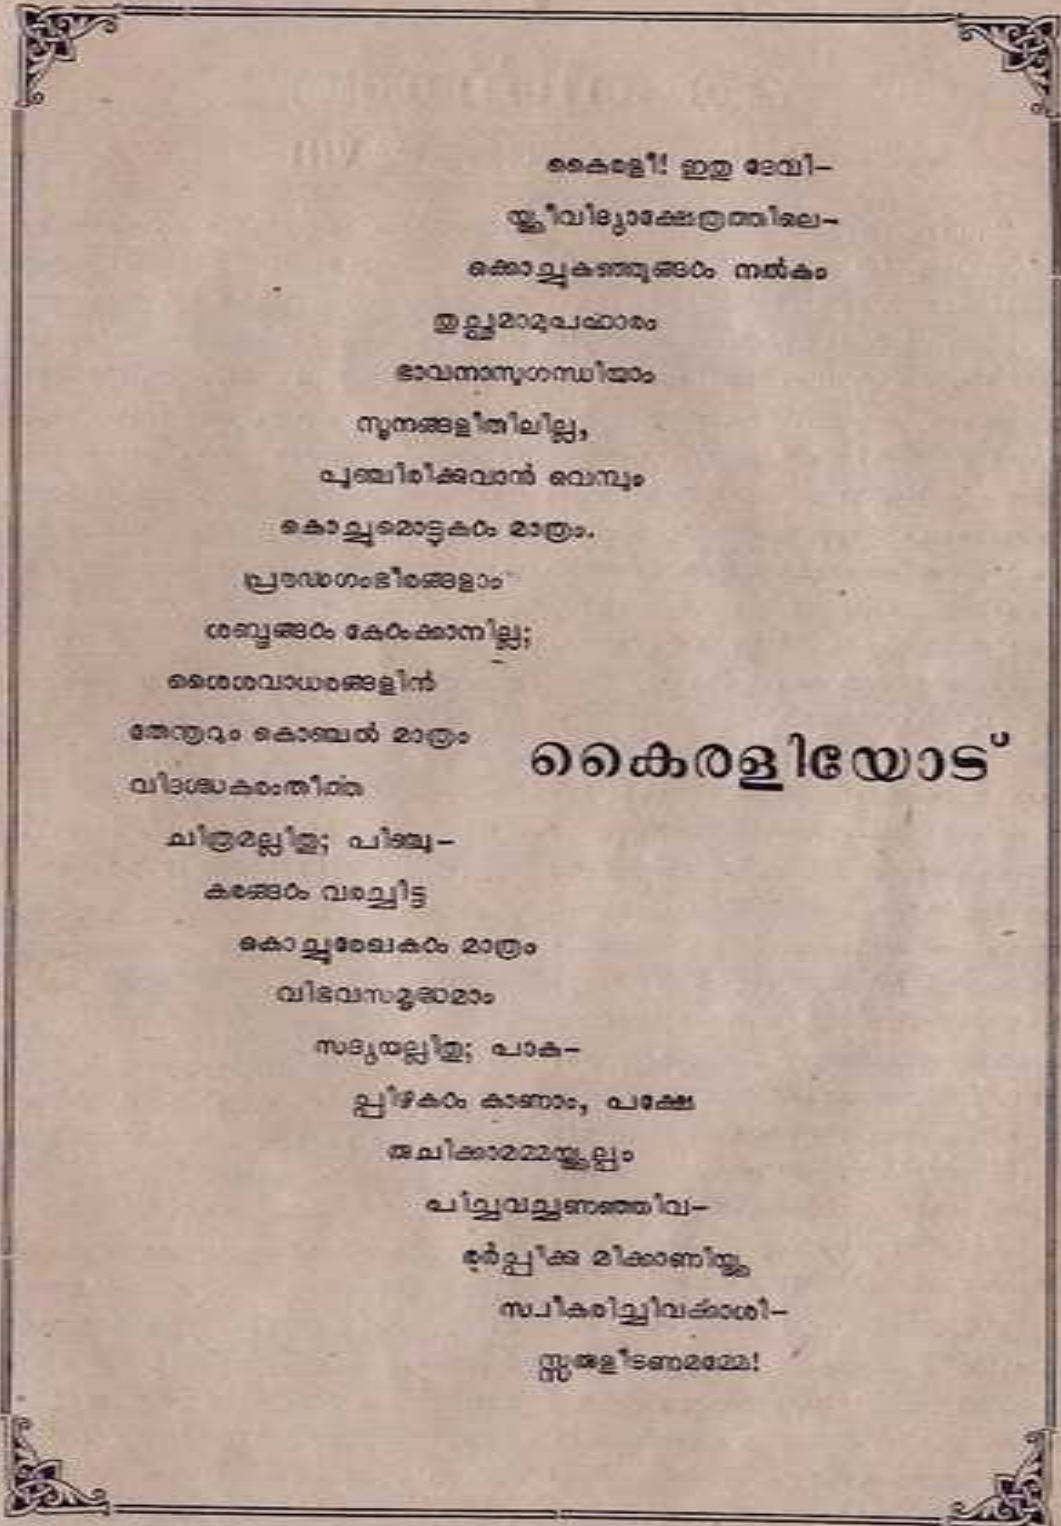 കൈരളിയോട്
കൈരളീ! ഇതു ദേവി–
യ്ക്കീവിദ്യാക്ഷേത്രത്തിലെ–
ക്കൊച്ചുകുഞ്ഞുങ്ങൾ നൽകും
തുച്ഛമാമുപഹാരം
ഭാവനാസുഗന്ധിയാം
സൂനങ്ങളീതിലില്ല,
പുഞ്ചിരിക്കുവാൻ വെമ്പും
കൊച്ചുമൊട്ടുകൾ മാത്രം.
പ്രൗഢഗംഭീരങ്ങളാം
ശബ്ദങ്ങൾ കേൾക്കാനില്ല;
ശൈശവാധരങ്ങളിൻ
തേന്തൂറും കൊഞ്ചൽ മാത്രം
വിദഗ്ദ്ധകരംതീർത്ത
ചിത്രമല്ലിതു; പിഞ്ചു–
കരങ്ങൾ വരച്ചിട്ട
കൊച്ചുരേഖകൾ മാത്രം
വിഭവസമൃദ്ധമാം
സദ്യയല്ലിതു; പാക–
പ്പിഴകൾ കാണാം, പക്ഷേ
രുചിക്കാമമ്മയ്ക്കല്പം
പിച്ചവച്ചണഞ്ഞിവ–
രർപ്പിക്കു മിക്കാണിയ്ക്ക
സ്വീകരിച്ചിവർക്കാശി–
സ്സരുളീടണമമ്മേ!